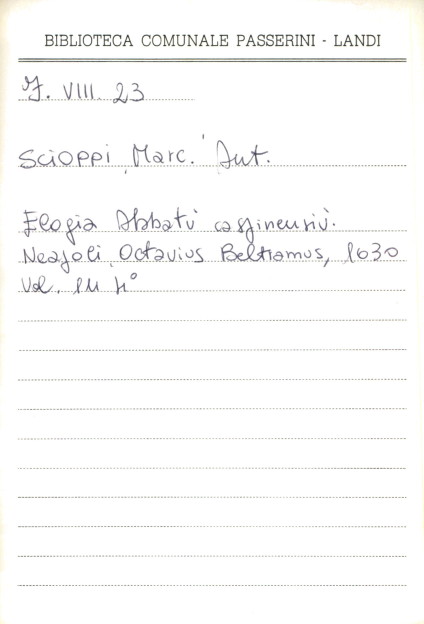 BIBLIOTECA COMUNALE PASSERINI - LANDI
J. VIII. 23
SCIOPPI, Marc. Ant.
Elogia Abbatū cassinensiū.
Neapoli, Octavius Beltramus, 1630
Vol. in 4°